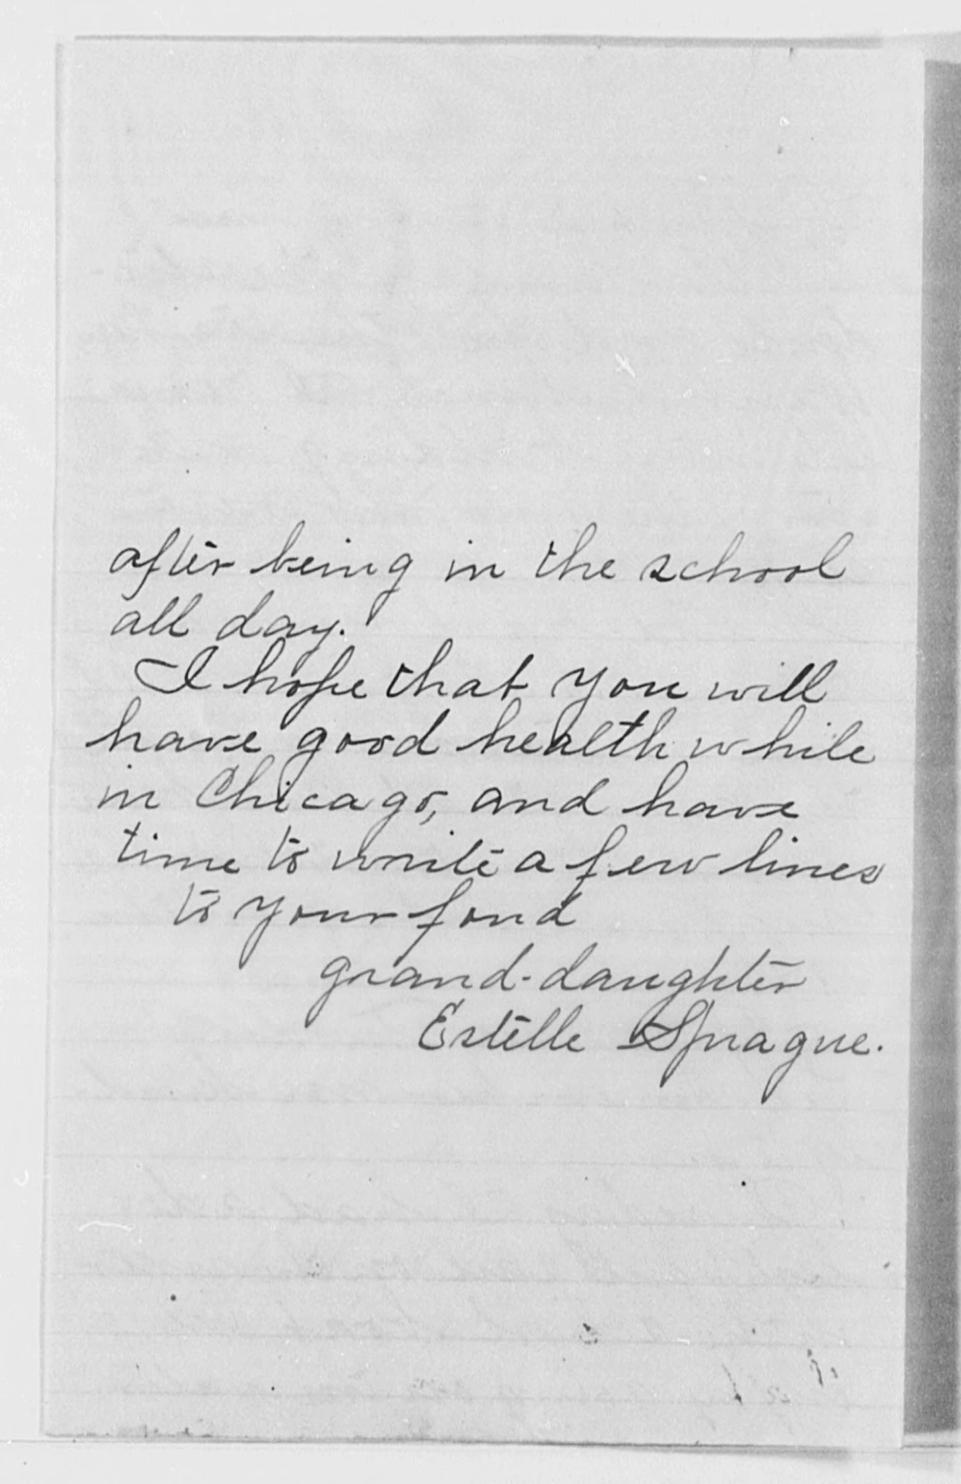 after being in the school
all day.
I hope that you will
have good health while
in Chicago, and have
time to write a few lines
to your fond
grand-daughter
Estelle Sprague.